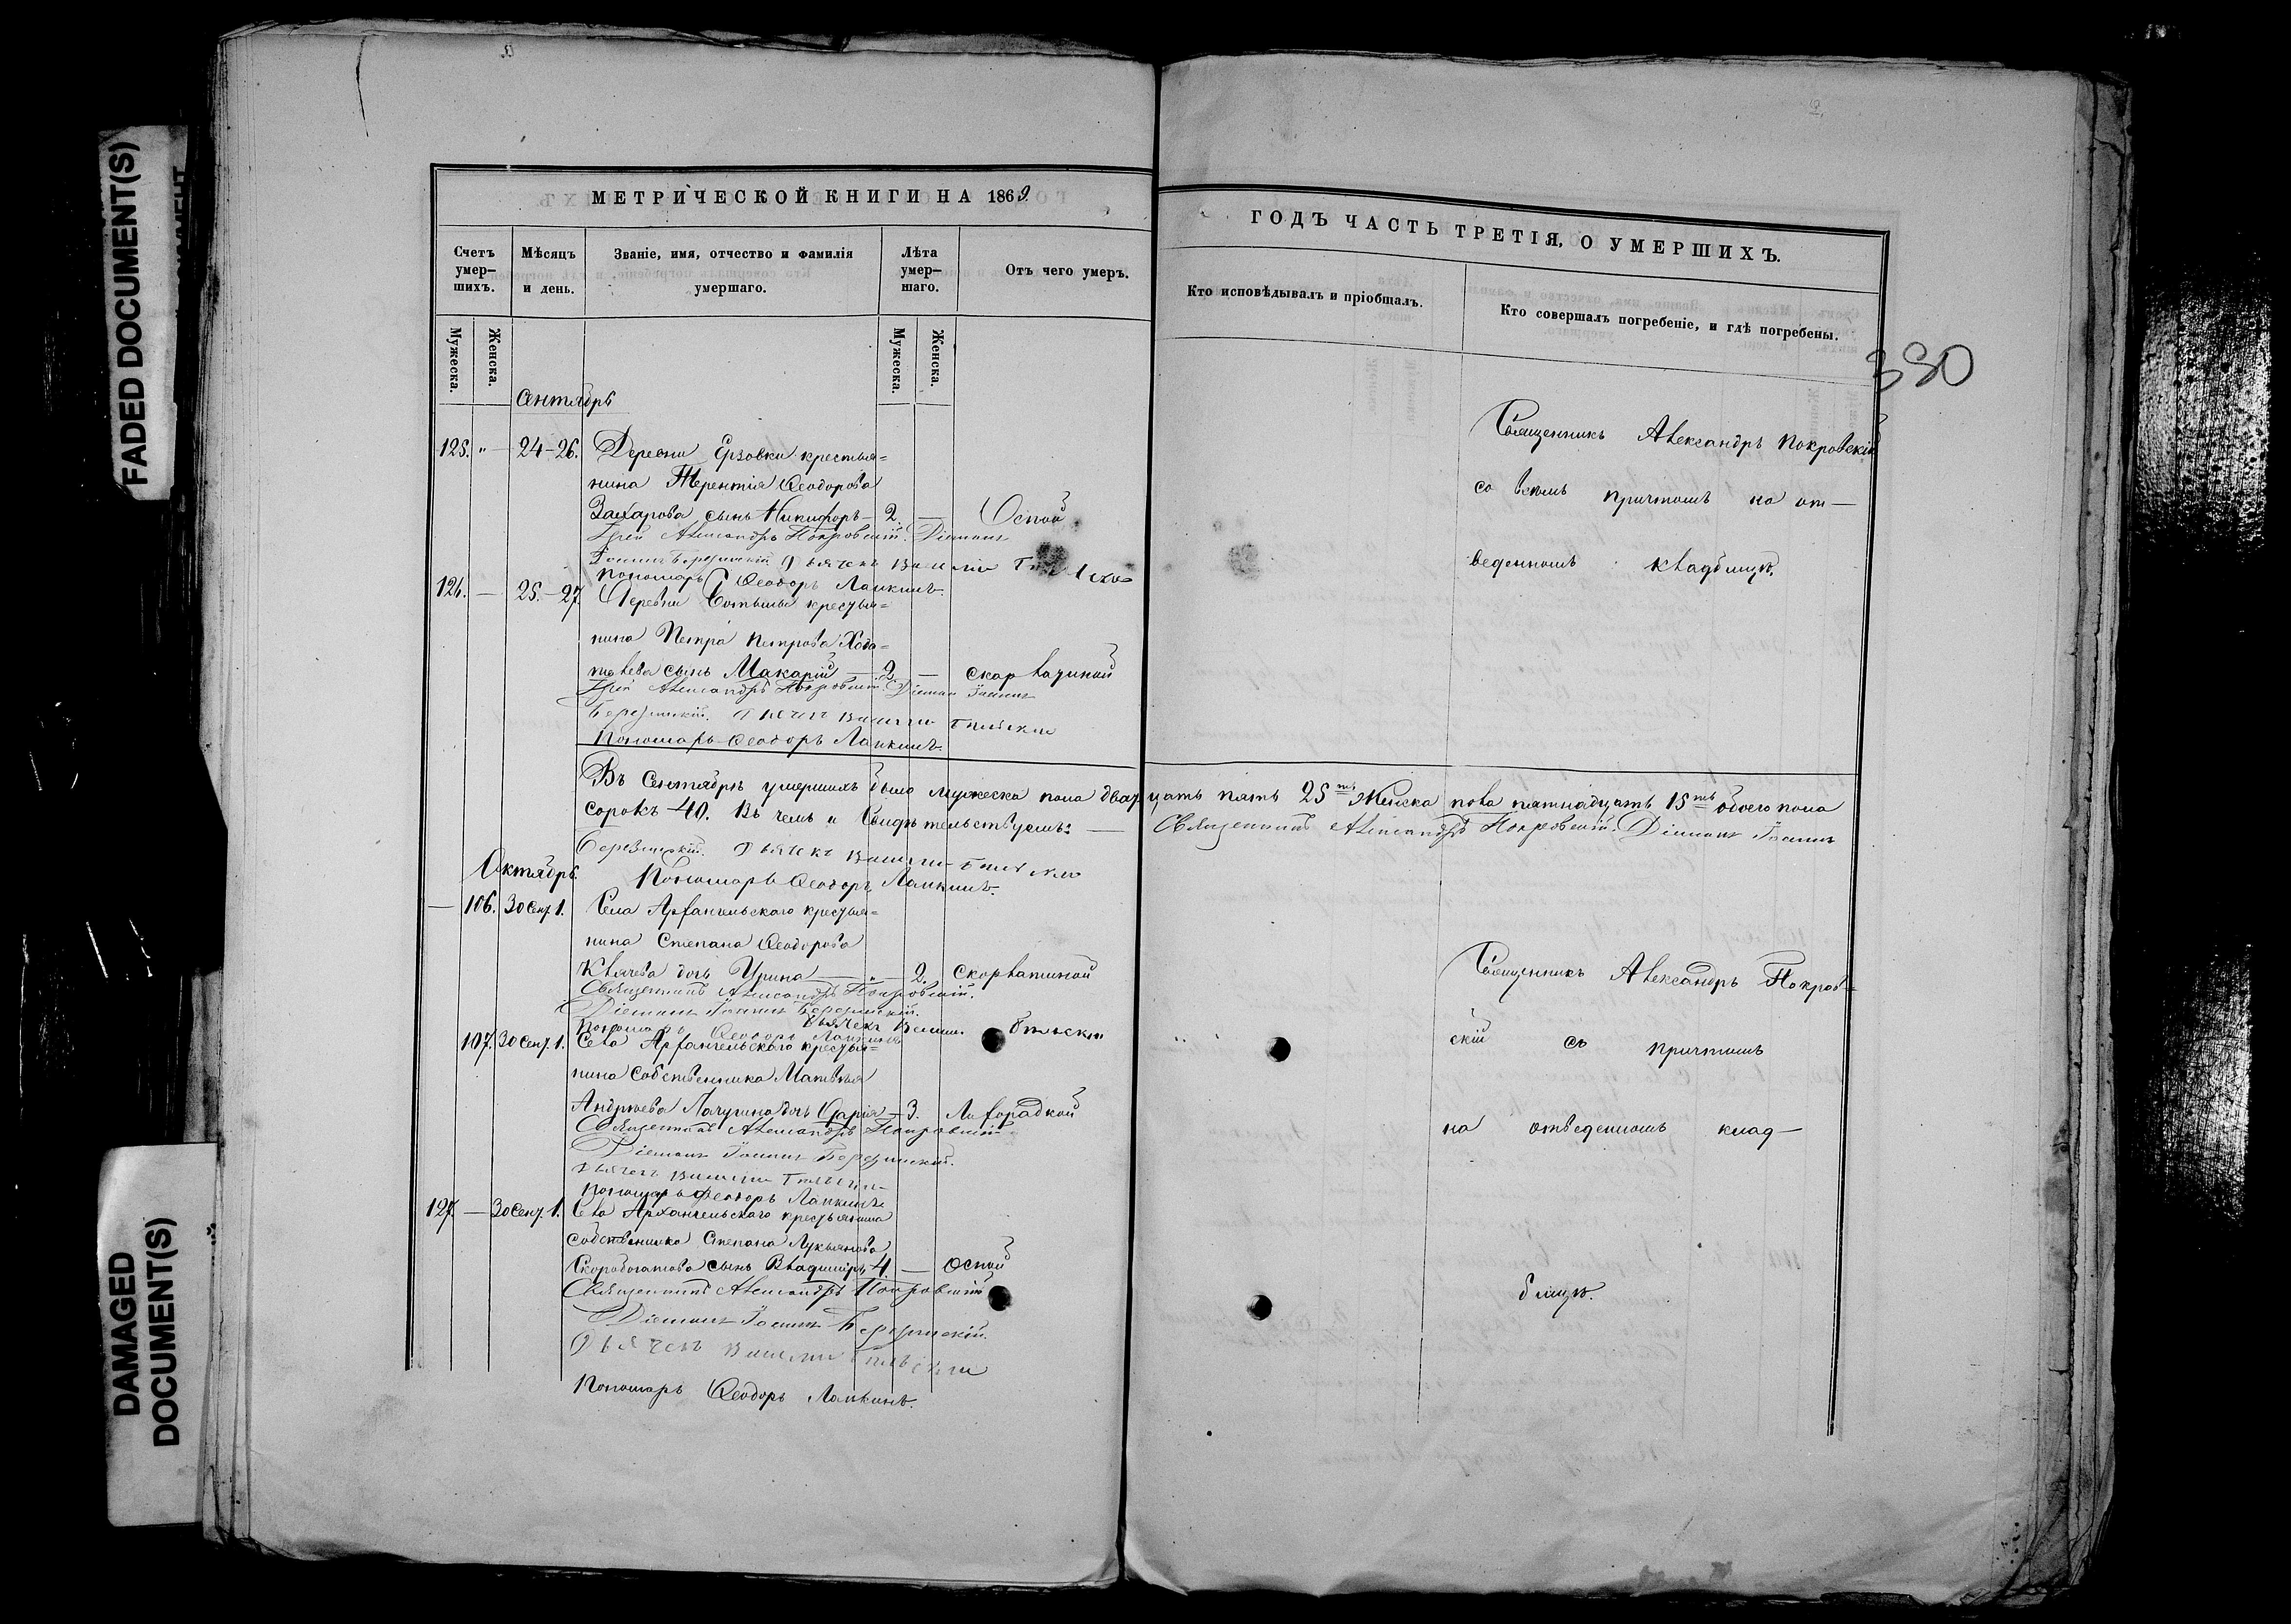 FADED DOCUMENT(S)
DAMAGED
DOCUMENT(S)
МЕТРИЧЕСКОЙ КНИГИ НА 1869
Счетъ умер-шихъ.
Мѣсяцъ и день.
Званіе, имя, отчество и фамилія умершаго.
Лѣта умер-шаго.
Отъ чего умеръ.
Мужеска.
Женска.
Мужеска.
Женска.
Сентябрь
125. " 24-26. Деревни Ерзовки крестья=
нина Терентія Ѳеодорова
Захарова сынъ Никифоръ — 2. — Оспой
Іерей Александръ Покровскій. Діаконъ
Іоаннъ Березинскій Дьячекъ
Пономарь Ѳеодоръ Лапкинъ.
126. — 25.-27. Деревни крестья=
нина Петра Петрова Хода=
сынъ Макарій — 2 — скарлатиной
Іерей Александръ Покровскій. Діаконъ Іоаннъ
Березинскій. Дьячекъ
Пономарь Ѳеодоръ Лапкинъ.
Въ Сентябрѣ умершихъ было мужеска пола двадцать пять 25ть Женска пола пятнадцать 15ть обоего пола
сорокъ — 40. Въ чемъ и Свидѣтельствуемъ: — Священникъ Александръ Покровскій. Діаконъ Іоаннъ
Березинскій. Дьячекъ
Октябрь. Пономарь Ѳеодоръ Лапкинъ.
— 106. 30 Сент. 1. Села Архангельскаго крестья=
нина Степана Ѳеодорова
дочь Ирина — " — 2. Скорлатиной
Священникъ Александръ Покровскій.
Діаконъ Іоаннъ Березинскій.
Дьячекъ
Пономарь Ѳеодоръ Лапкинъ
107. 30 Сент. 1. Села Архангельскаго крестья=
нина собственника Матвѣя
Андреева дочь Дарія — 3. Лихорадкой
Священникъ Александръ Покровскій
Діаконъ Іоаннъ Березинскій.
Дьячекъ
Пономарь Ѳеодоръ Лапкинъ
127. — 30 Сент. 1. Села Архангельскаго крестьянина
собственника Степана Лукьянова
Скоробогатова сынъ Владиміръ 4. — оспой
Священникъ Александръ Покровскій
Діаконъ Іоаннъ Березинскій.
Дьячекъ
Пономарь Ѳеодоръ Лапкинъ.
ГОДЪ ЧАСТЬ ТРЕТІЯ, О УМЕРШИХЪ.
Кто исповѣдывалъ и пріобщалъ.
Кто совершалъ погребеніе, и гдѣ погребены.
330
Священникъ Александръ Покровскій
со всѣмъ причтомъ на от—
веденномъ кладбищѣ.
Священникъ Александръ Покров—
скій съ причтомъ
на отведенномъ клад—
бищѣ.